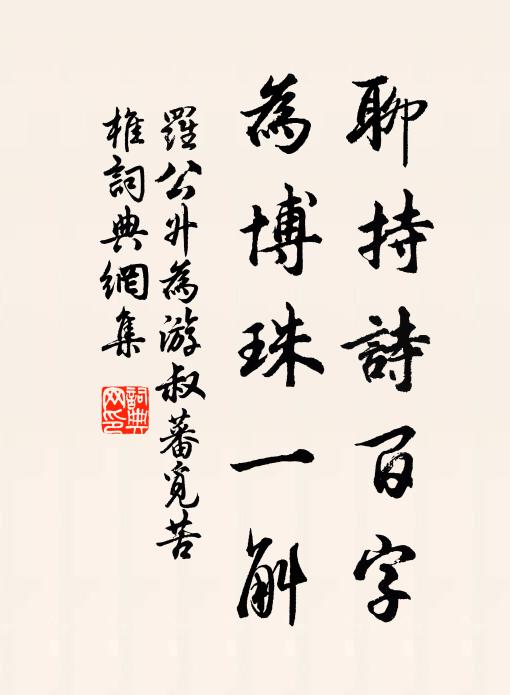 聊持詩百字
為博珠一斛
羅公升為游叔蕃覓苦
榷詞典網集
詞典
网印